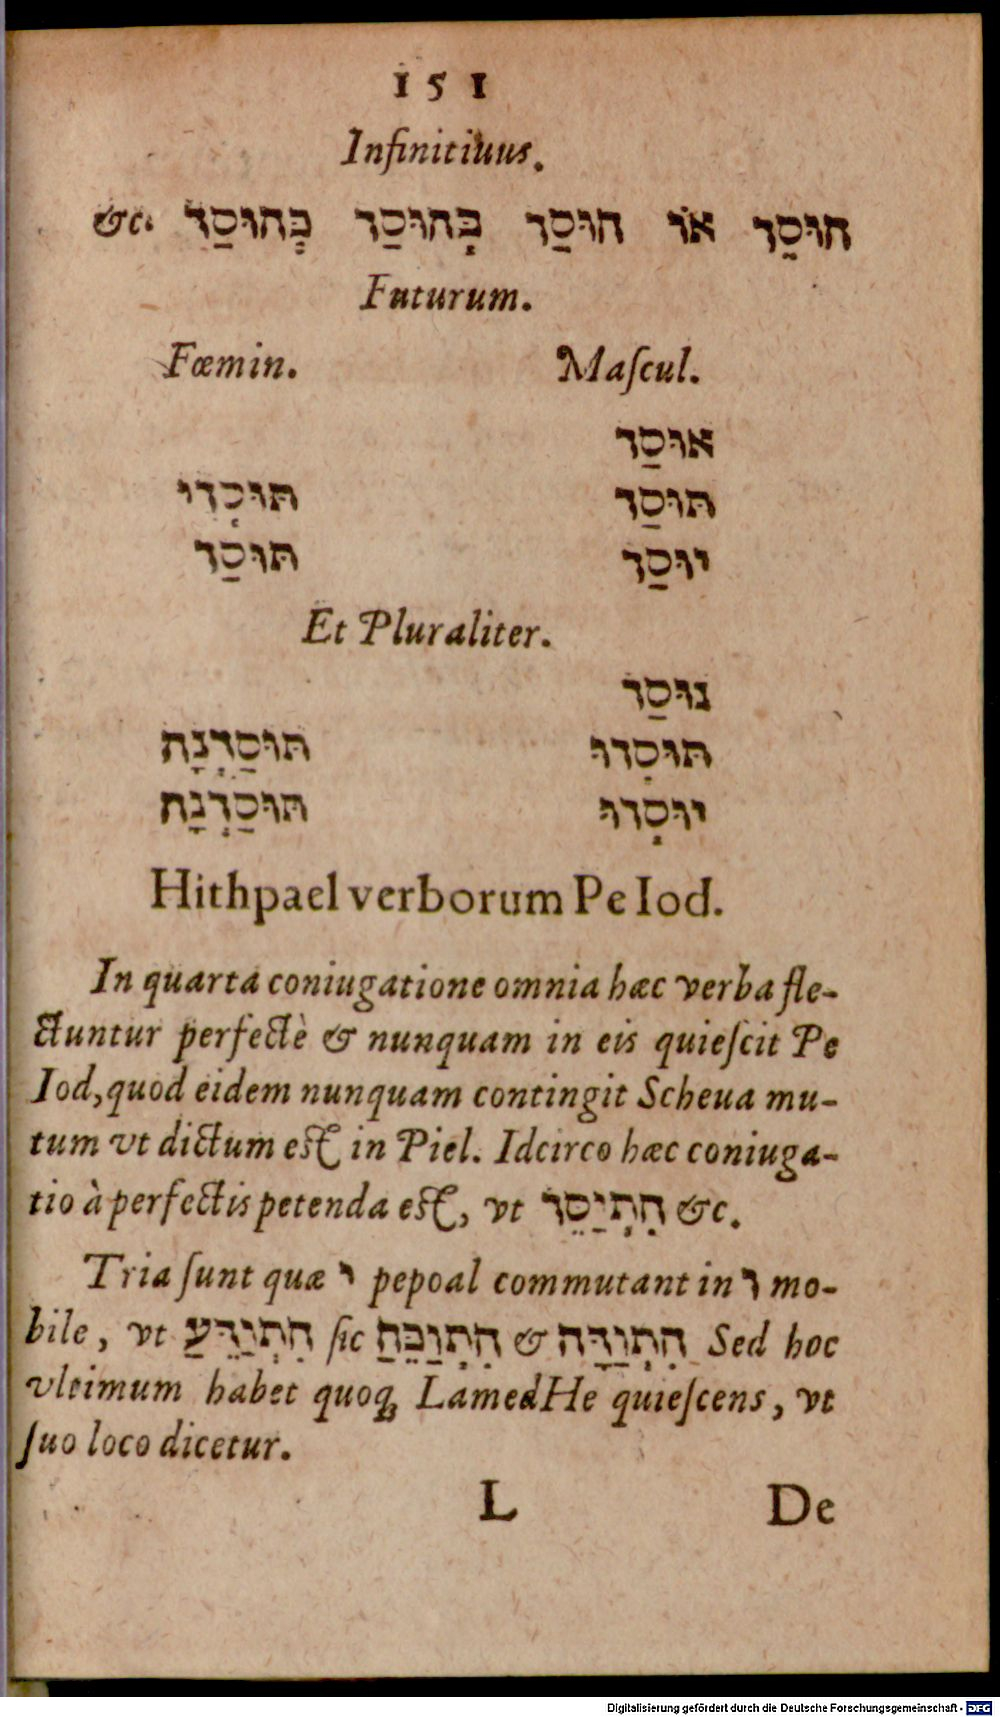 151
Infinitiuus.
הוּסֵד אוֹ הוּסַד בְּהוּסַד כְּהוּסַד &c.
Futurum.
Fœmin. Maſcul.
אוּסַד
תּוּסַד תּוּסְדִי
יוּסַד תּוּסַד
Et Pluraliter.
נוּסַד
תּוּסְדוּ תּוּסַדְנָה
יוּסְדוּ תּוּסַדְנָה
Hithpael verborum Pe Iod.
In quarta coniugatione omnia hæc verba fle-
ctuntur perfectè & nunquam in eis quieſcit Pe
Iod, quod eidem nunquam contingit Scheua mu-
tum vt dictum eſt in Piel. Idcirco hæc coniuga-
tio à perfectis petenda eſt, vt הִתְיַסֵּד &c.
Tria ſunt quæ י pepoal commutant in ו mo-
bile, vt הִתְוַדֵּעַ ſic הִתְוַכֵּחַ & הִתְוַדָּה Sed hoc
vltimum habet quoq; Lamed He quieſcens, vt
ſuo loco dicetur.
L De
Digitalisierung gefördert durch die Deutsche Forschungsgemeinschaft - DFG